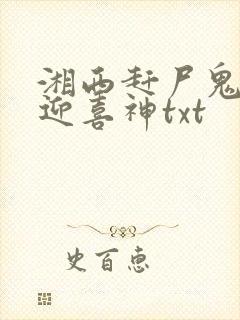 湘西赶尸鬼
迎喜神txt
史百惠